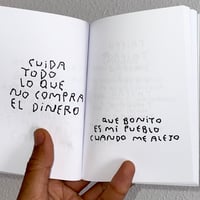 CUIDA
TODO
LO QUE
NO COMPRA
EL DINERO
QUE BONITO
ES MI PUEBLO
CUANDO ME ALEJO